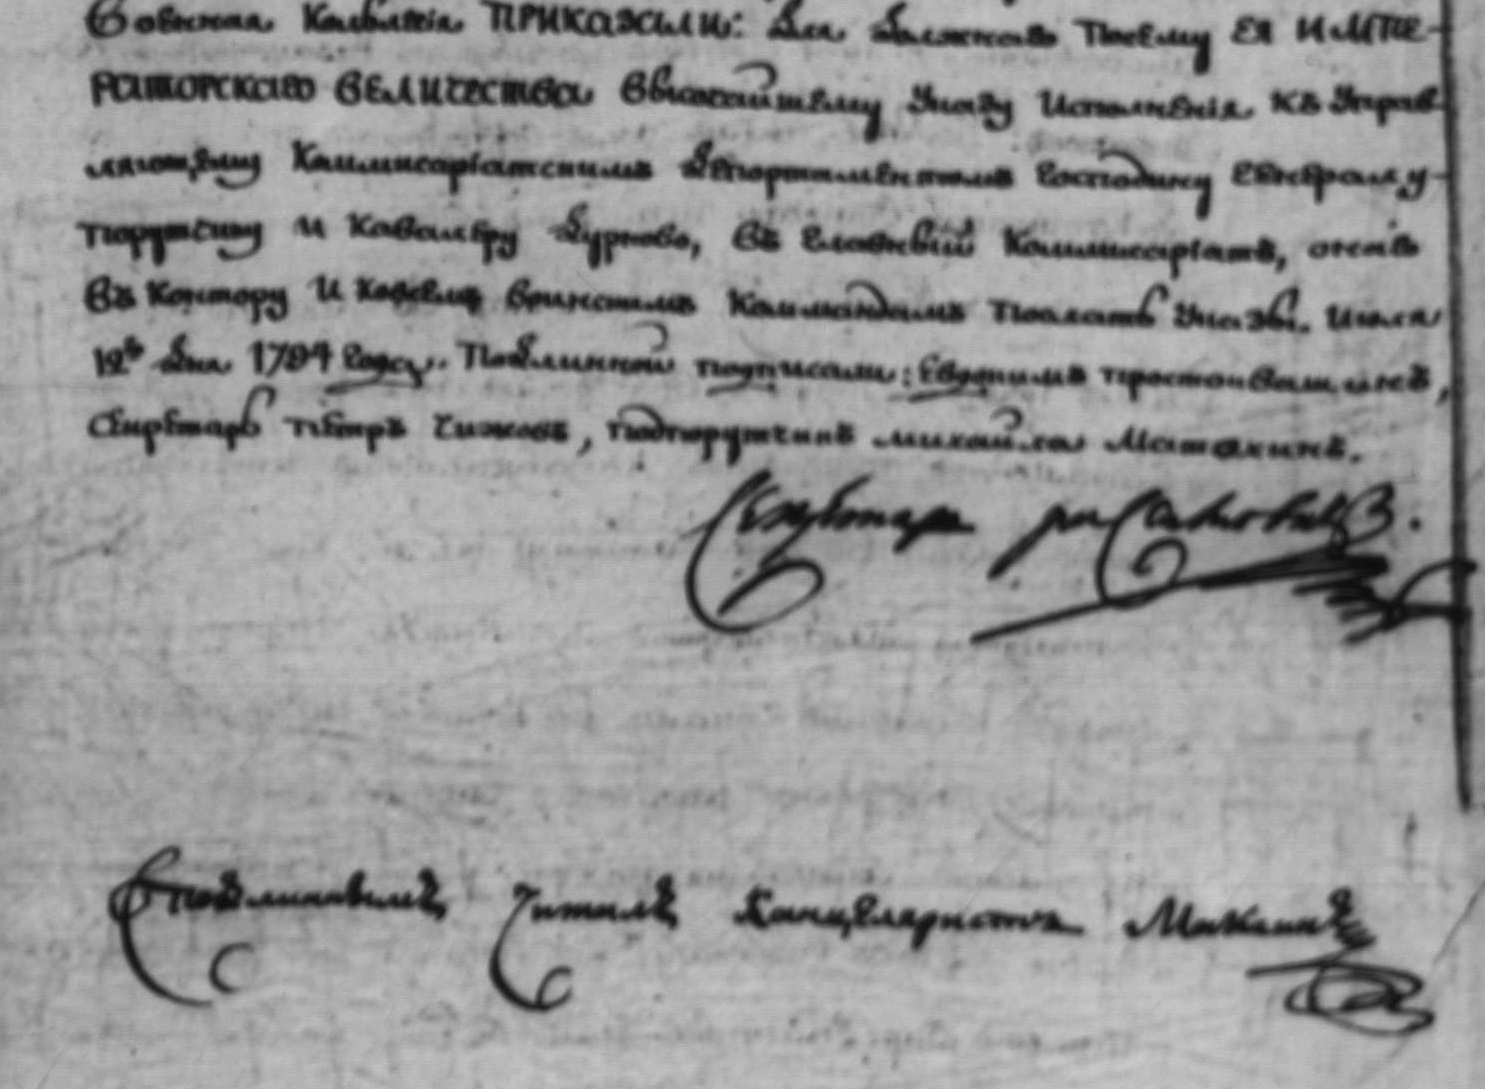 Военная Коллегия ПРИКАЗАЛИ: Для должнаго посему ЕЯ ИМПЕ-
РАТОРСКАГО ВЕЛИЧЕСТВА высочайшему Указу Исполнения къ Управ
ляющему Коммисариатскимъ департаментомъ Господину Генералу
порутчику и Кавалеру Дурново, въ Главный Коммисариатъ, онаго
въ Контору и ковсемъ воинскимъ Командамъ послать Указы. Июля
12го дня 1784 Году. Подлинной подписали: Евдокимъ
Секретарь петръ Чижовъ, подпорутчикъ михайла Матохинъ.
Секретарь
Сподлиннымъ Читалъ Канцеляристъ Микли